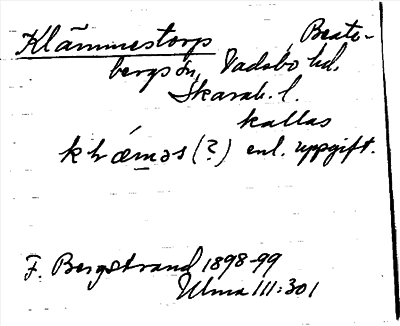 Klämmestorp, Beate-
bergs sn, Vadsbo hd.
Skarab. l.
kallas
klǽməs (?) enl. uppgift.
F. Bergstrand 1898-99
Ulma 111:301